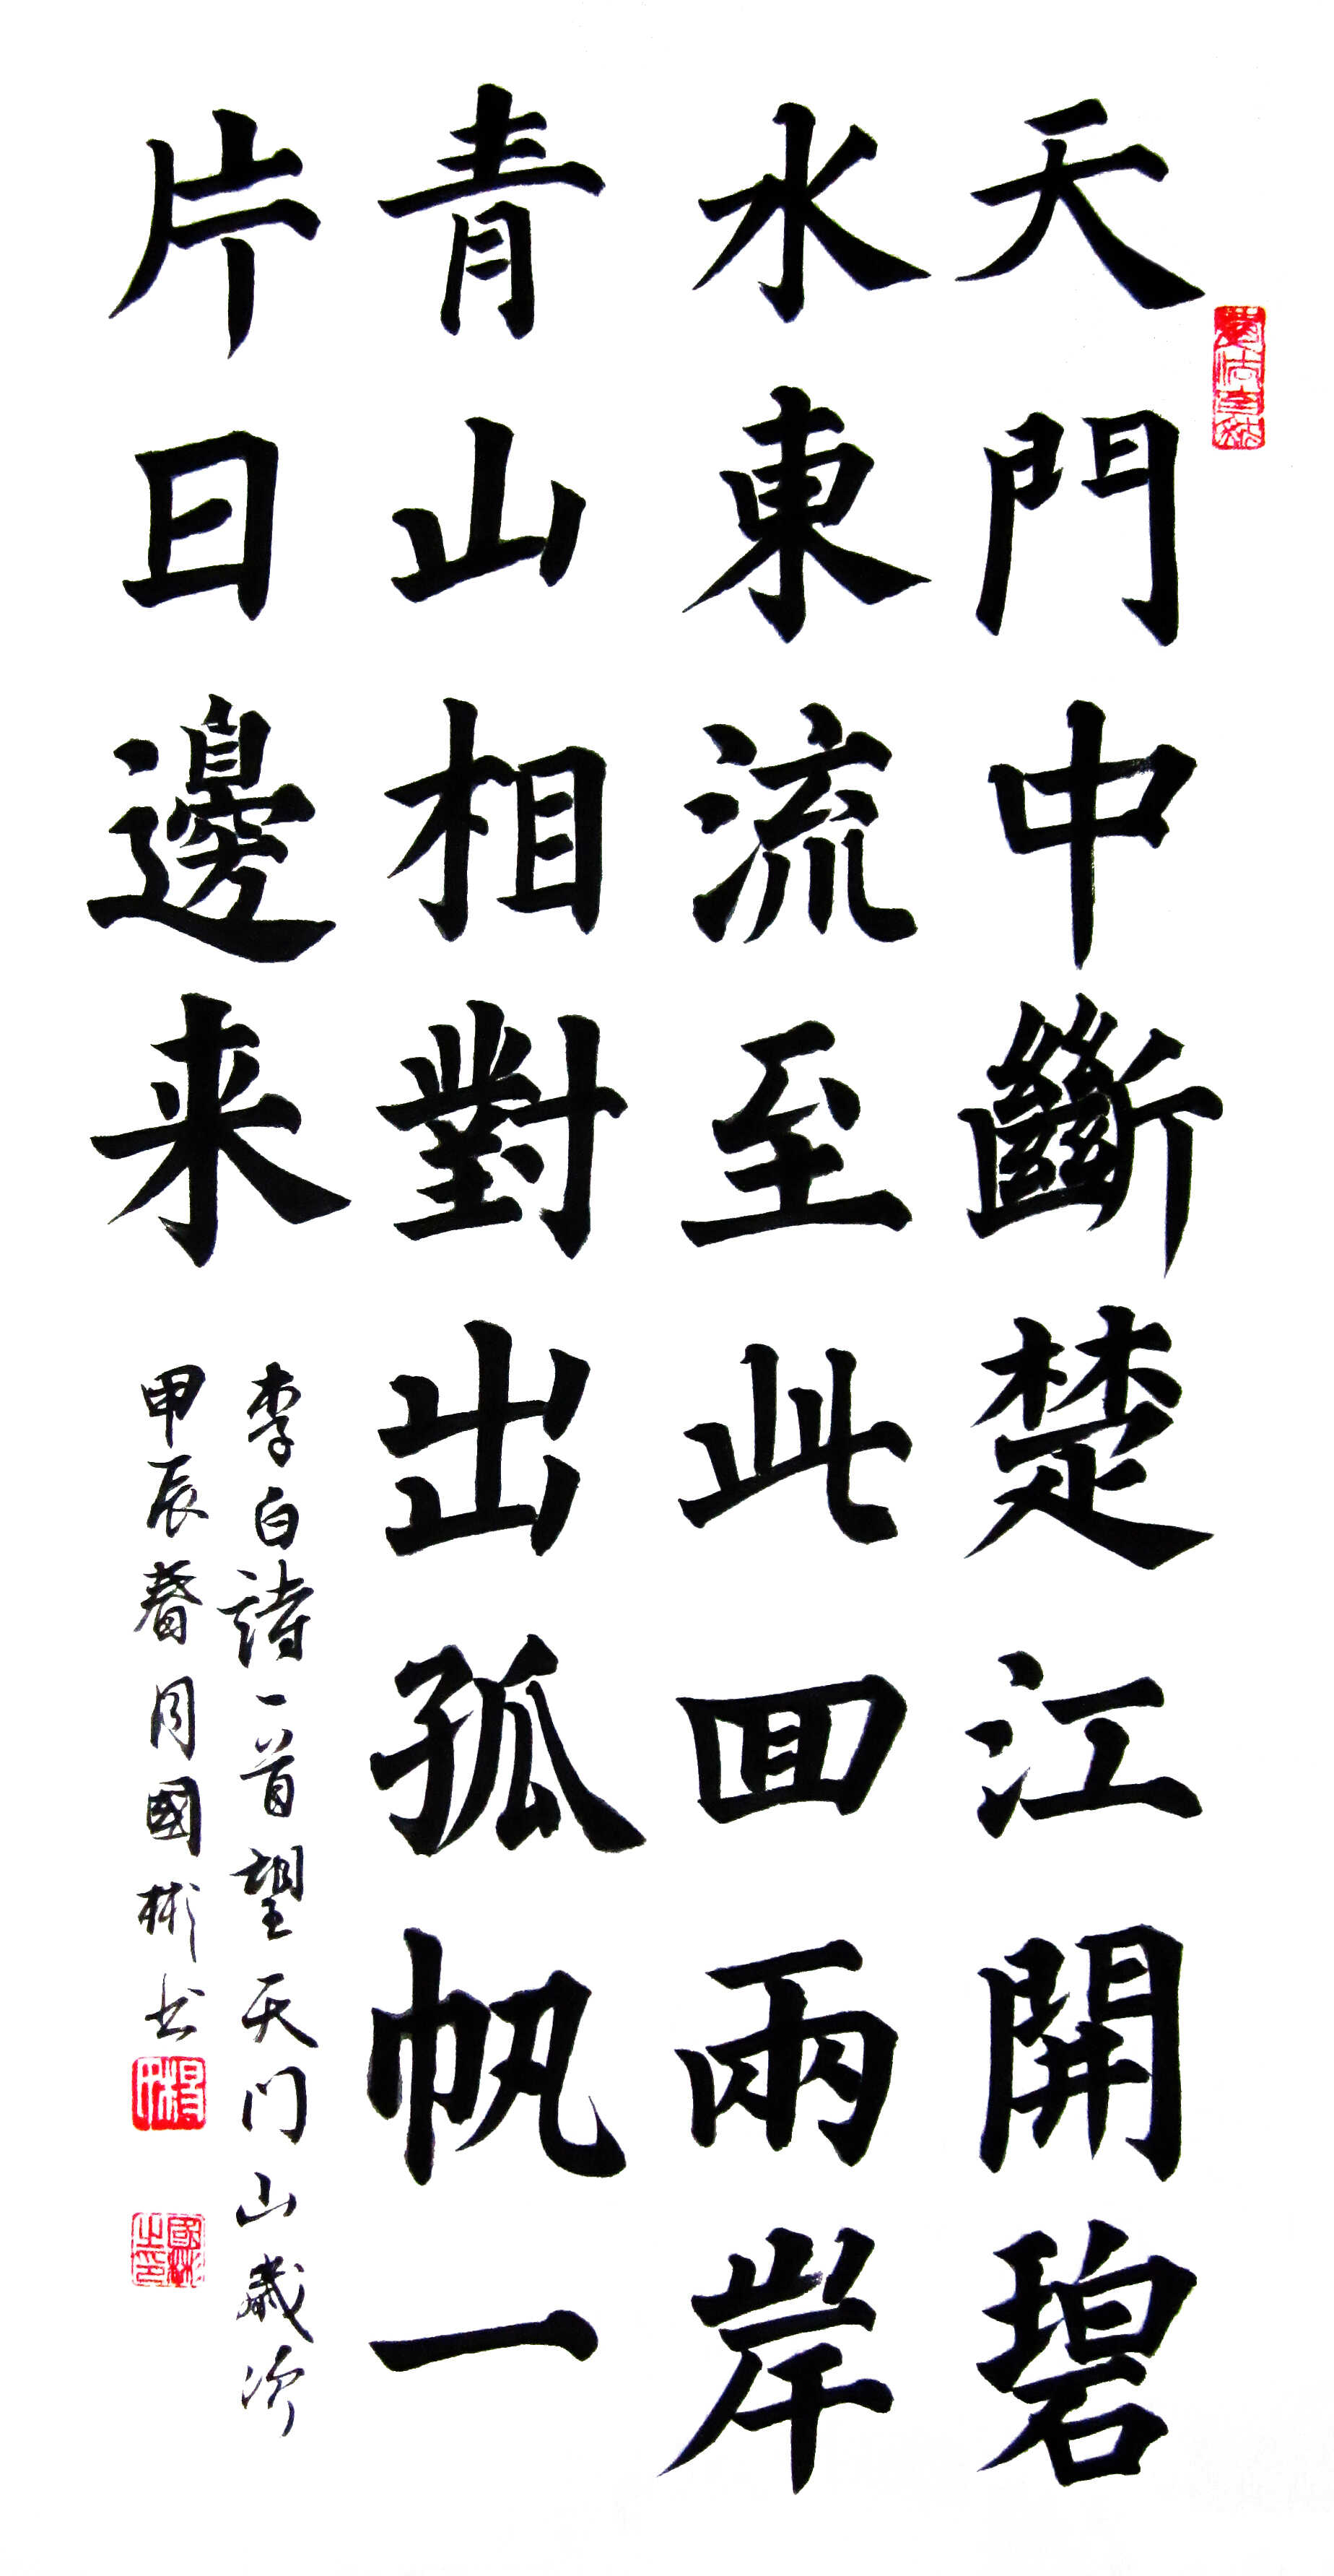 天門中斷楚江開碧
水東流至此回兩岸
青山相對出孤帆一
片日邊来
李白詩一首望天门山歲次
甲辰春月國彬书
國彬之印